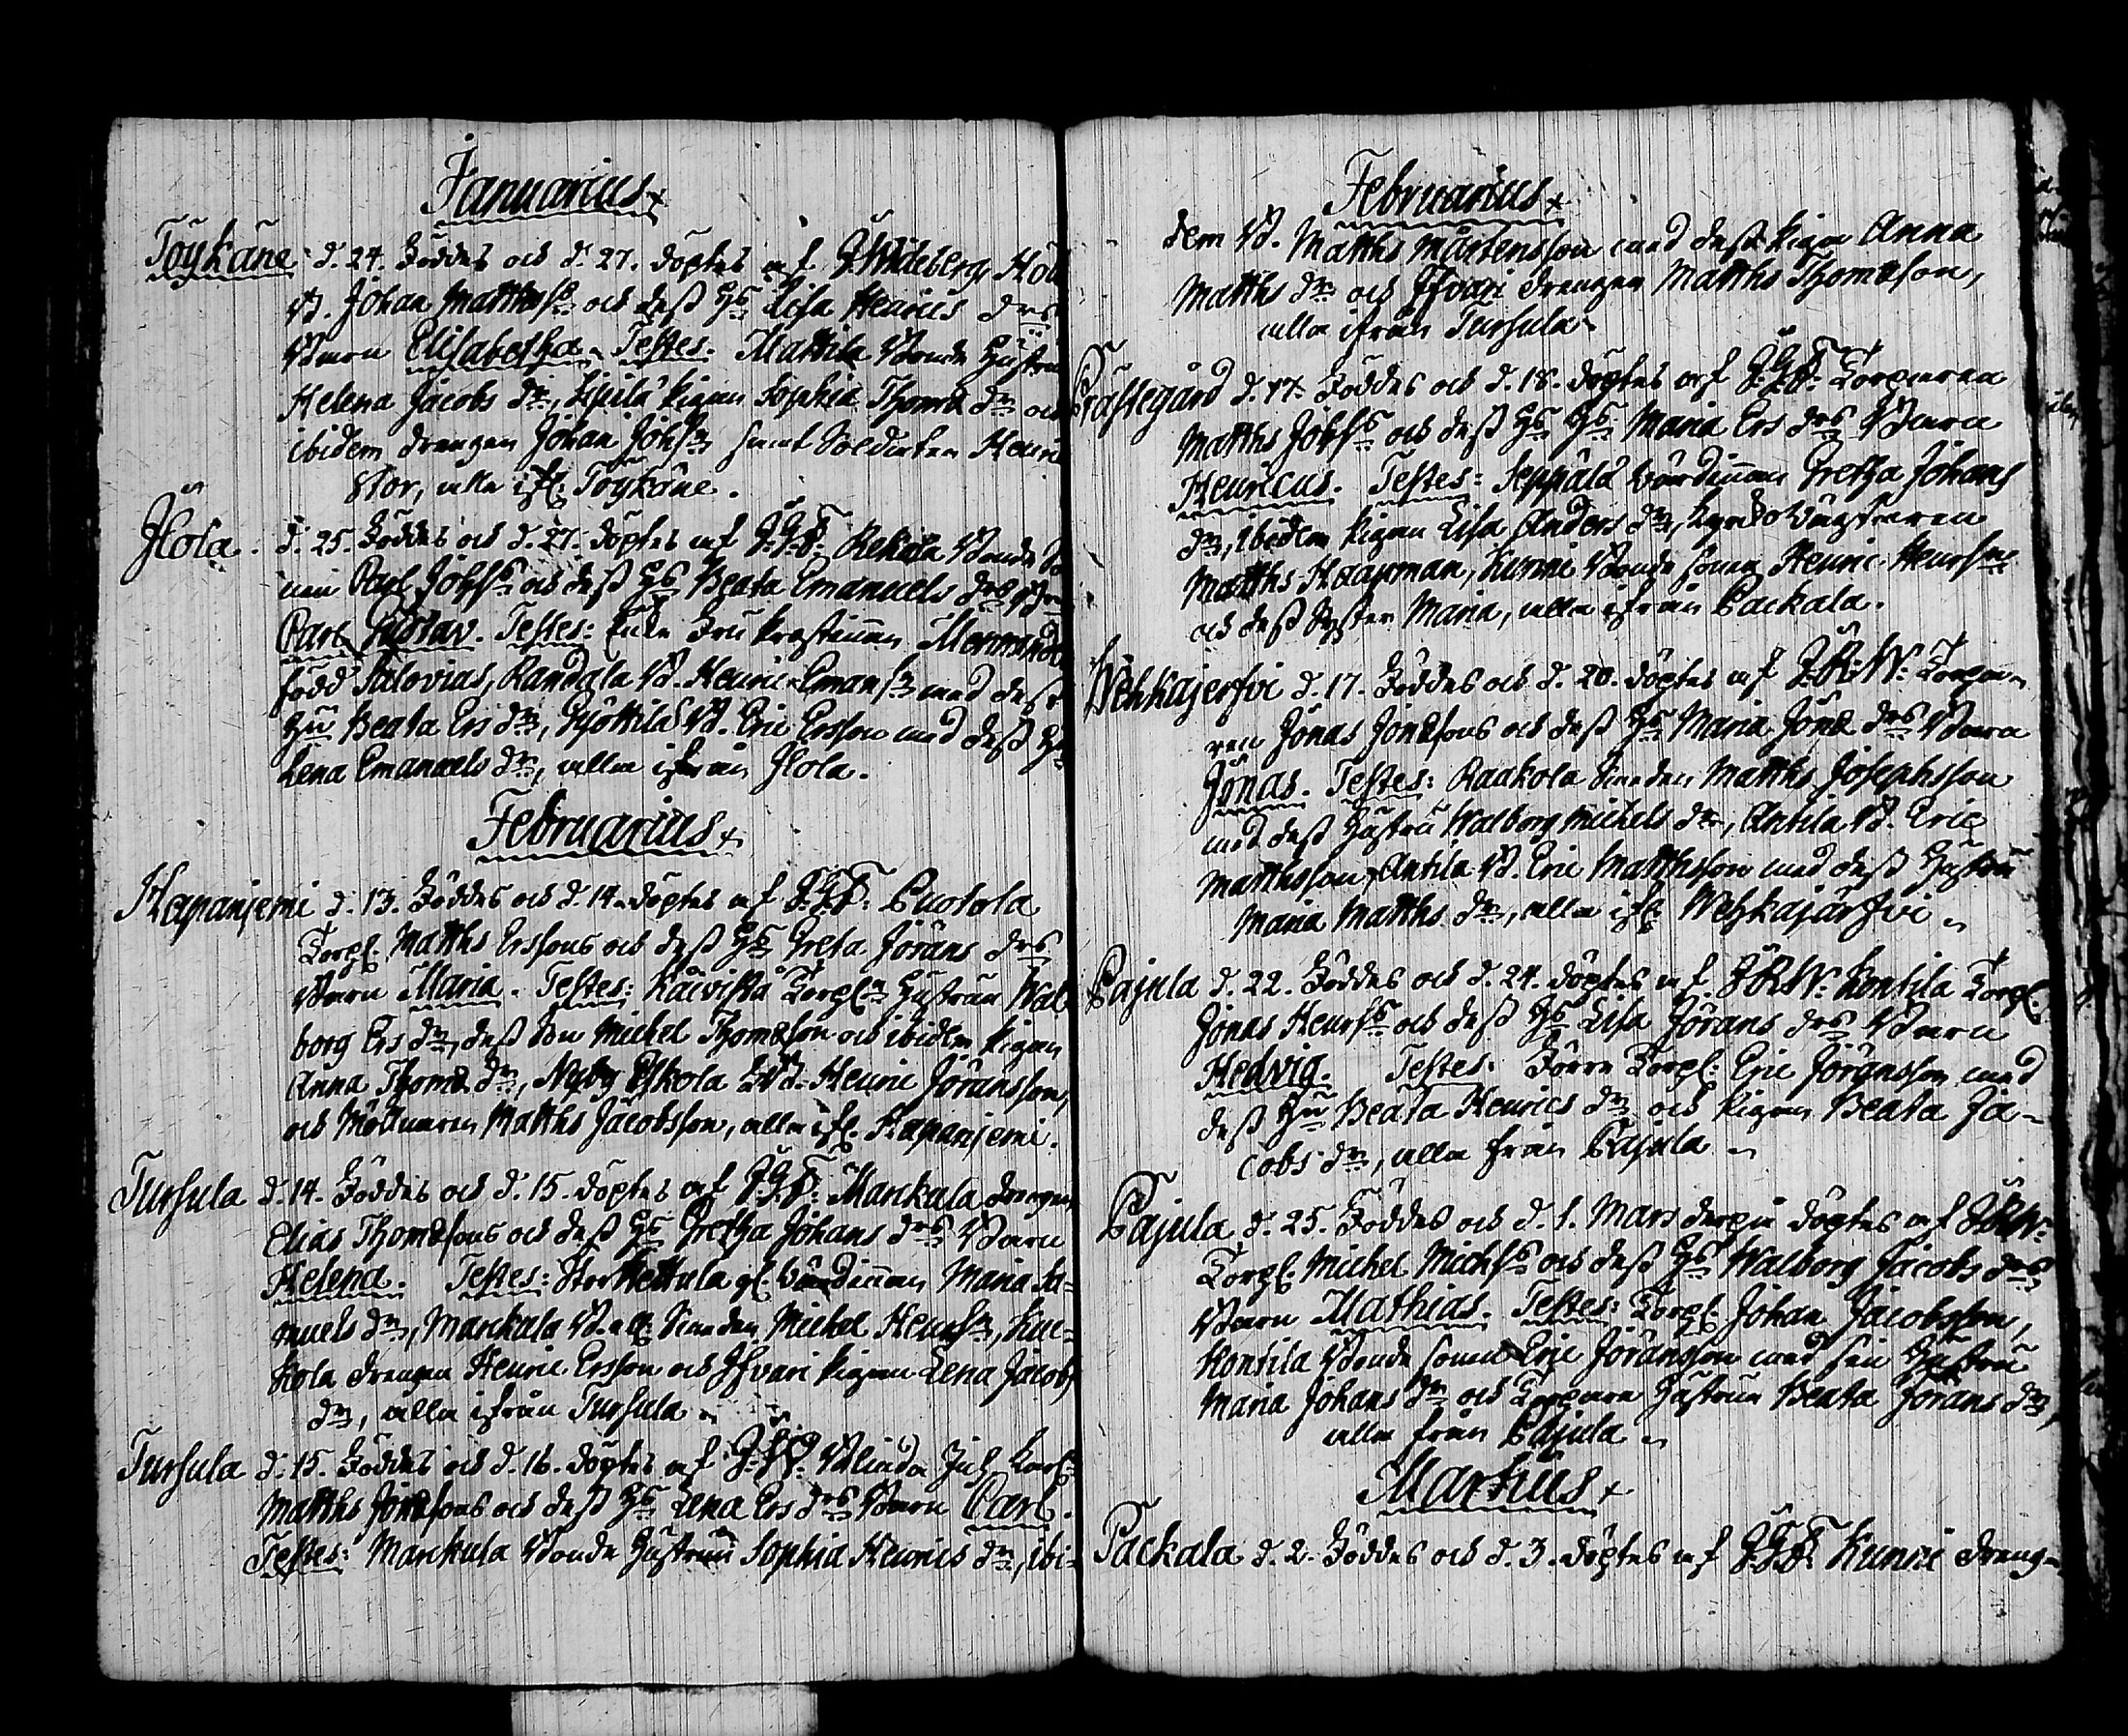 Januarius
Töykäne d. 24. Föddes och d. 27. döptes af G. Wideberg
B. Johan Matthss och dess Hs Lisa Henrics drs
Barn Elisabetha. Testes: Mattila Bonde Hustru
Helena Jacobs dr, pigan Sophia Thomæ dr och
ibidem drengen Johan Johsn samt Soldaten Henric
Stor, alla ifr. Töykäne.
Ilola. d. 25. Föddes och d. 27. döptes af J.G.F. Rekola Bonde
Carl Johss och dess Hs Beata Emanuels drs Barn
Carl Gustav. Testes: Fru Prostinnan
född Salovius, Randala B. Henric Emansn med dess
Hu Beata Ers dr, Pyöttilä B. Eric Ersson med dess Hu
Lena Emanuels dr, alla ifrån Ilola.
Februarius
Hapanjemi d. 13. Föddes och d. 14. döptes af J.G.F. Puolola
Torp. Matths Erssons och dess Hs Greta Jörans drs
Barn Maria. Testes: Torp. Hustrun Wal-
borg Ers dr, dess Son Michel Thomæson och ibidem pigan
Anna Thomæ dr, Nyby Eskola B. Henric Jöransson,
och Möllnaren Matths Jacobsson, alla ifr. Hapanjemi.
Tursula d. 14. Föddes och d. 15. döptes af J.G.F. Markula drengen
Elias Thomæsons och dess Hs Gretha Johans drs Barn
Helena. Testes: Stor Kettula gl. Värdinnan Maria Sa-
muels dr, Markula Michel Henrsn,
kola drengen Henric Ersson och Ifvari pigan Lena Jacobs
dr, alla ifrån Tursula.
Tursula d. 15. Föddes och d. 16. döptes af
Matths Jonæsons och dess Hs Lena Ers drs Barn Carl.
Testes: Markula Bonde Hustrun Sophia Henrics dr, ibi-
Februarius
dem B. Matths Mårtensson med dess piga Anna
Matths dr och Ifvari drengen Matths Thomæson,
alla ifrån Tursula.
Prästegård d. 17. Föddes och d. 18. döptes af J.G.F. Torparen
Matths Johss och dess Hs Maria Ers drs Barn
Henricus. Testes: Seppälä Värdinnan Gretha Johans
dr, ibidem pigan Lisa Anders dr, Kyrkovägtaren
Matths Haapman, Kunni Bonde sonen Henric Henrsn
och dess Syster Maria, alla ifrån Packala.
Wehkajerfvi d. 17. Föddes och d. 20. döptes af J.R.W. Torpa-
ren Jonas Jonæsons och dess Hs Maria Jonæ drs Barn
Jonas. Testes: Raakola Matths Josephsson
med dess Hustru Walborg Michels dr, Antila B. Eric
Matthsson, Antila B. Eric Matthsson med dess Hustru
Maria Matths dr, alla ifr. Wehkajärfvi
Pajula d. 22. Föddes och d. 24. döptes af J.R.W. Kontila Torp.
Jonas Henrss och dess Hs Lisa Jörans drs Barn
Hedvig. Testes: Torp. Eric Jöransson med
dess Hu Beata Henrics dr och pigan Beata Ja-
cobs dr, alla från Pajula
Pajula d. 25. Föddes och d. 1. Mars derpå döptes af J.R.W.
Torp. Michel Michss och dess Hs Walborg Jacobs drs
Barn Mathias. Testes: Torp. Johan Jacobsson,
Kontila Bonde sonen Eric Jöransson med sin Hustru
Maria Johans dr och Torpare Hustrun Beata Jörans dr,
alla från Pajula
Martius
Packala d. 2. Föddes och d. 3. döptes af J.G.F. Kunni dreng-